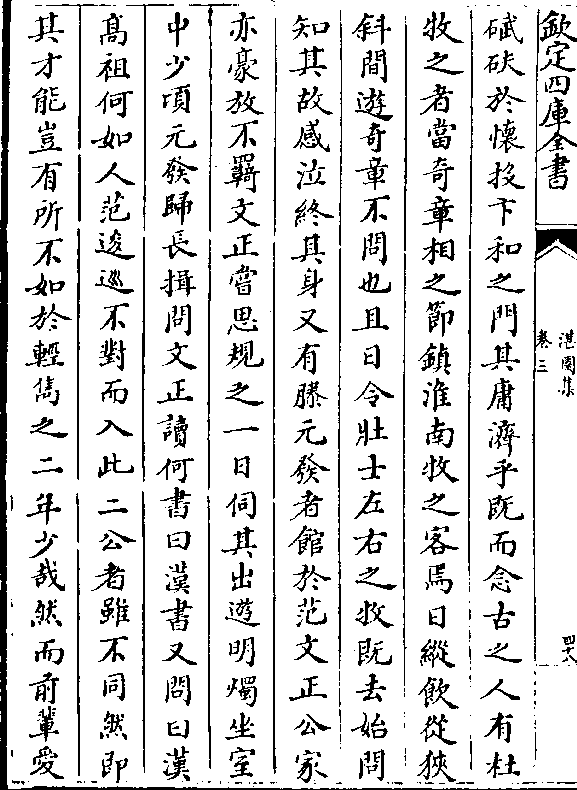 欽定四庫全書
湛園集
卷三
四十八
碔砆於懷投卞和之門其庸濟乎既而念古之人有杜
牧之者當竒章相之節鎮淮南牧之客焉日縱飲從狹
斜間遊竒章不問也且日令壯士左右之牧既去始問
知其故感泣終其身又有滕元發者館於范文正公家
亦豪放不羇文正嘗思規之一日伺其出遊明燭坐室
中少頃元發歸長揖問文正讀何書曰漢書又問曰漢
髙祖何如人范逡巡不對而入此二公者雖不同然即
其才能豈有所不如於輕雋之二年少哉然而前輩愛